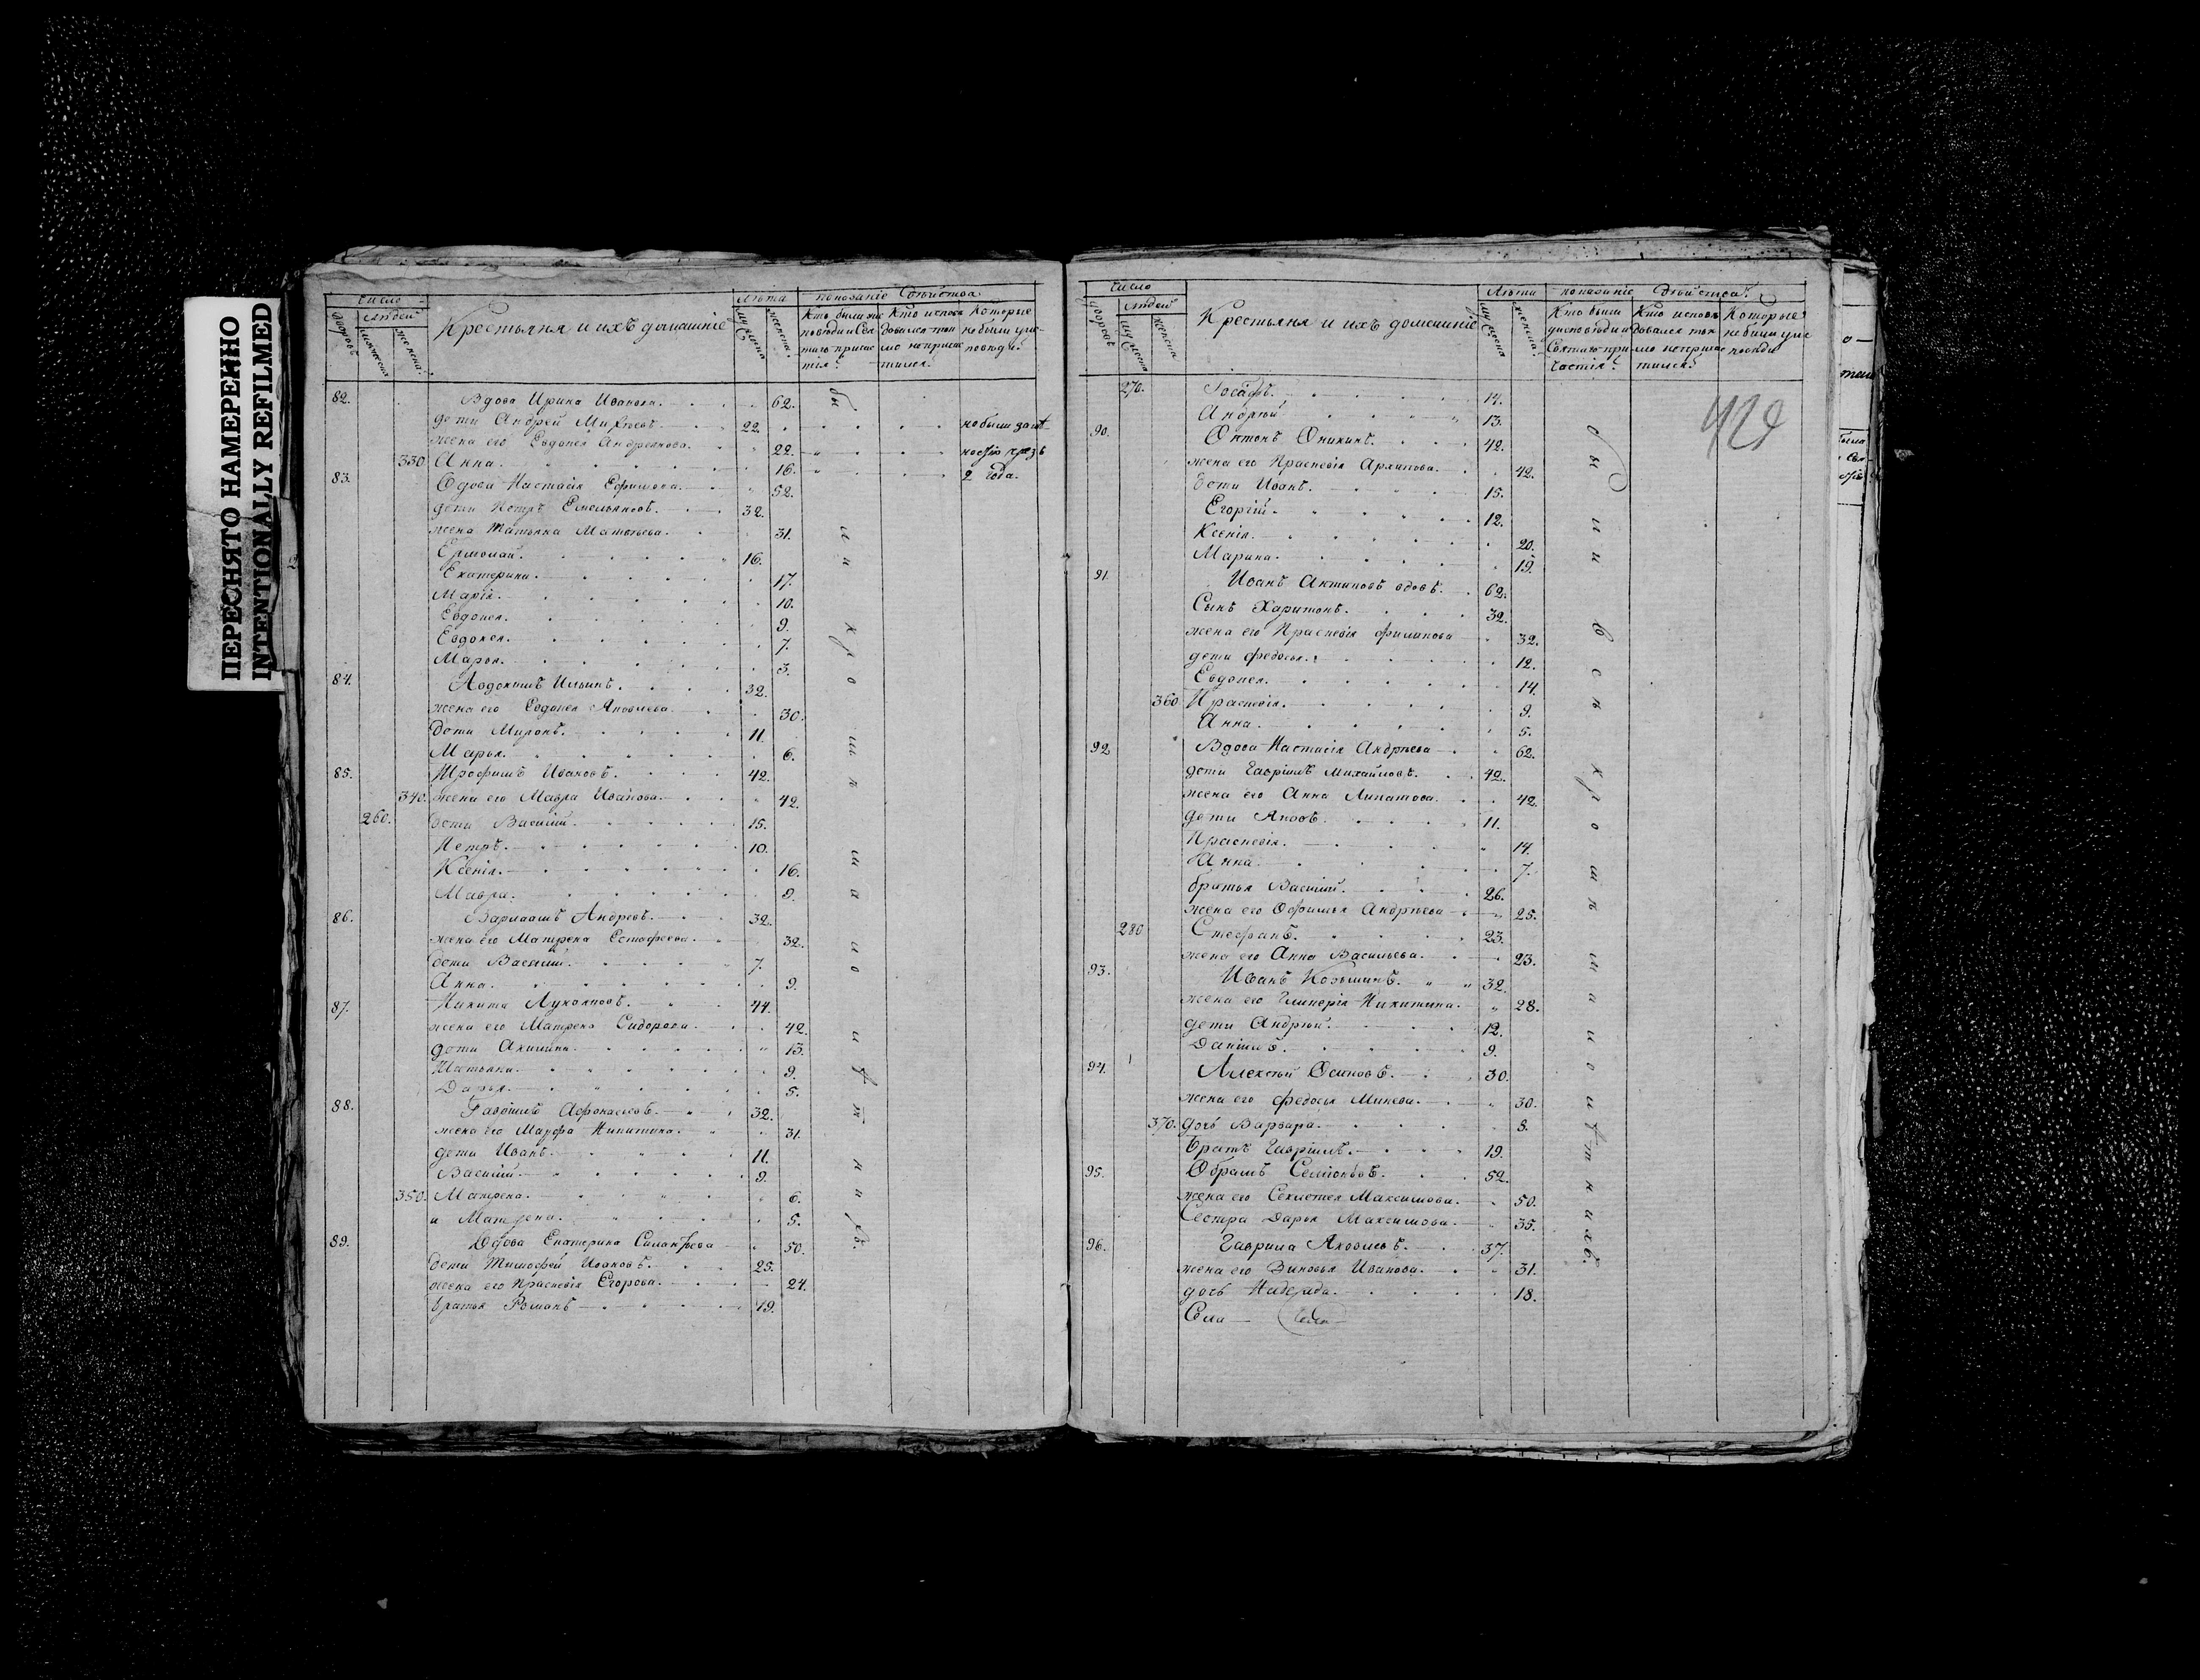 ПЕРЕСНЯТО НАМЕРЕННО
INTENTIONALLY REFILMED
Число
людей
Лѣта
показаніе Дѣйства
дворовъ
мужеска
женска
Крестьяня и ихъ домашніе
мужеска
женска
Кто были на исповѣди и Свя таго причас тія
Кто испов ѣдовался токмо непричас тился
Которые небыли у исповѣди
82. Вдова Ирина Иванова. 62.
дети Андрей Михѣевъ. 22. небыли за от
жена его Евдокея Андреянова. 22. чрезъ
330. Анна. 16. 2 года.
83. Вдова Настасія Ефимова. 52.
дети Петръ Емельяновъ. 32.
жена Татьяна Матвѣева. 31.
Ермолай. 16.
Екатерина. 17.
Марія. 10.
Евдокея. 9.
Евдокея. 7.
Марья. 3.
84. Авдокимъ Ильинъ. 32.
жена его Евдокея Яковлева. 30.
дети Миронъ. 11.
Марья. 6.
85. Трофимъ Ивановъ. 42.
340. жена его Мавра Иванова. 42.
260. дети Василій. 15.
Петръ. 10.
Ксенія. 16.
Мавра. 9.
86. Варлаамъ Андреевъ. 32.
жена его Матрена Естафеева. 32.
дети Василій. 7.
Анна. 9.
87. Никита Лукояновъ. 44.
жена его Матрена Сидорова. 42.
дети Акилина. 13.
Татьяна. 9.
Дарья. 5.
88. Гавріилъ Афонасьевъ. 32.
жена его Марфа Никитина. 31.
дети Иванъ. 11.
Василій. 9.
350. Матрена. 6.
и Матрена. 5.
89. Вдова Екатерина Силантьева 50.
дети Тимофей Ивановъ. 25.
жена его Праскевія Егорова. 24.
братья Романъ 19.
были кромѣ малолѣтнихъ.
Число
людей
Лѣта
показаніе Дѣйства.
дворовъ
мужеска
женска
Крестьяня и ихъ домашніе
мужеска
женска
Кто были у исповѣди и Святаго при частія
Кто исповѣ довался ток мо непричас тился
Которые небыли у ис повѣди
429
270. Іосафъ. 14.
Андрѣй 13.
90. Онтонъ Оникинъ. 42.
жена его Праскевія Архипова. 42.
дети Иванъ. 15.
Егоргій. 12.
Ксенія. 20.
Марина. 19.
91. Иванъ Антиповъ вдовъ. 62.
Сынъ Харитонъ. 32.
жена его Праскевія Филипова 32.
дети Федосья. 12.
Евдокея. 14.
360 Праскевія. 9.
Анна. 5.
92 Вдова Настасія Андрѣева 62.
дети Гавріилъ Михайловъ. 42.
жена его Анна Липатова. 42.
дети Яковъ. 11.
Праскевія. 14.
Анна. 7.
братья Василій. 26.
жена его Офимья Андрѣева 25.
280 Стефанъ. 23.
жена его Анна Васильева. 23.
93. Иванъ Козьминъ. 32.
жена его Гликерія Никитина. 28.
дети Андрѣй. 12.
Даніилъ. 9.
94. Алексѣй Осиповъ. 30.
жена его Федосья Минева. 30.
370. дочь Варвара. 8.
братъ Гавріилъ. 19.
95. Обрамъ Семіоновъ. 52.
жена его Секистея Максимова. 50.
Сестра Дарья Максимова. 35.
96. Гаврила Яковлевъ. 37.
жена его Зиновья Иванова. 31.
дочь Надежда. 18.
были всѣ кромѣ малолѣтнихъ.